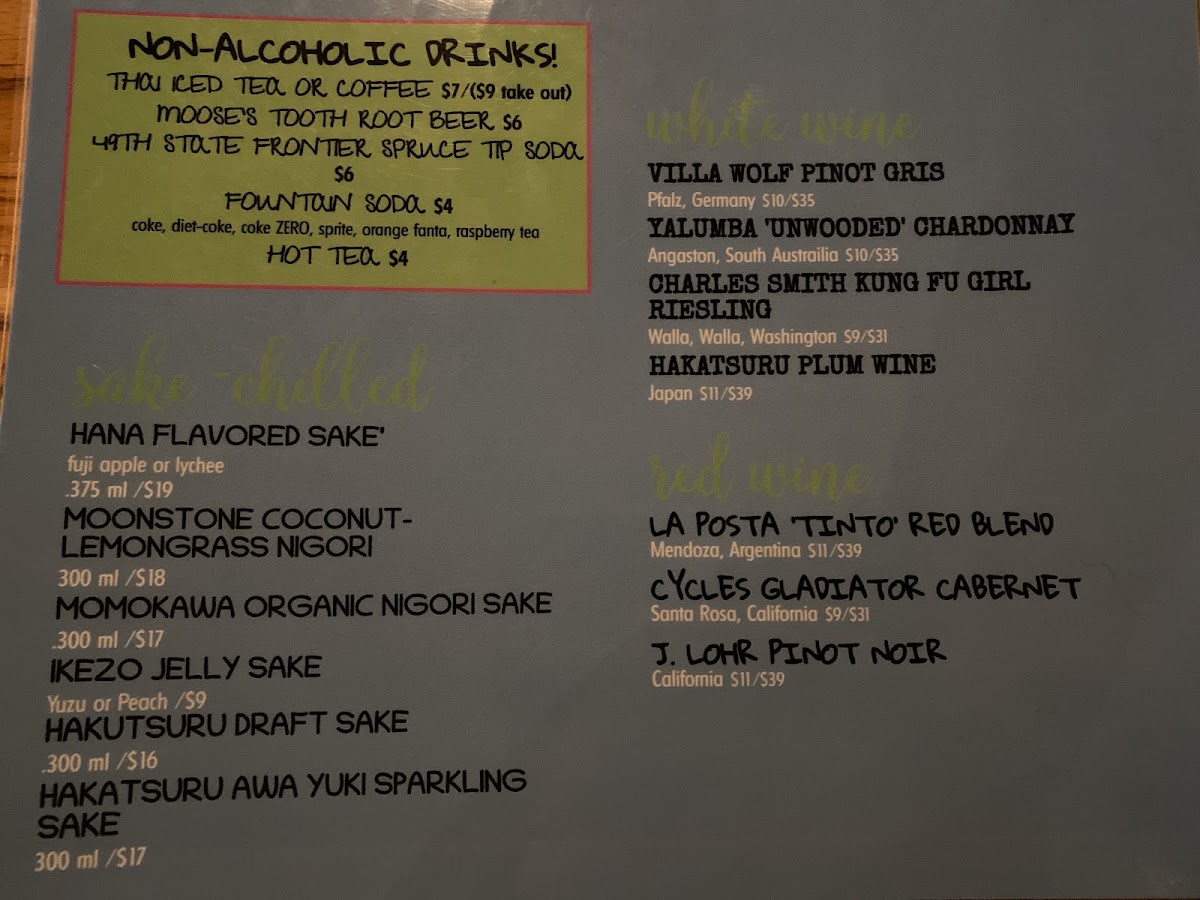 NON-ALCOHOLIC DRINKS!
THAI ICED TEA OR COFFEE $7/($9 take out)
MOOSE'S TOOTH ROOT BEER $6
49TH STATE FRONTIER SPRUCE TIP SODA
$6
FOUNTAIN SODA $4
coke, diet-coke, coke ZERO, sprite, orange fanta, raspberry tea
HOT TEA $4
sake -chilled
HANA FLAVORED SAKE'
fuji apple or lychee
.375 ml /$19
MOONSTONE COCONUT-
LEMONGRASS NIGORI
300 ml /$18
MOMOKAWA ORGANIC NIGORI SAKE
.300 ml /$17
IKEZO JELLY SAKE
Yuzu or Peach /$9
HAKUTSURU DRAFT SAKE
.300 ml /$16
HAKATSURU AWA YUKI SPARKLING
SAKE
300 ml /$17
white wine
VILLA WOLF PINOT GRIS
Pfalz, Germany $10/$35
YALUMBA 'UNWOODED' CHARDONNAY
Angaston, South Austrailia $10/$35
CHARLES SMITH KUNG FU GIRL
RIESLING
Walla, Walla, Washington $9/$31
HAKATSURU PLUM WINE
Japan $11/$39
red wine
LA POSTA 'TINTO' RED BLEND
Mendoza, Argentina $11/$39
CYCLES GLADIATOR CABERNET
Santa Rosa, California $9/$31
J. LOHR PINOT NOIR
California $11/$39